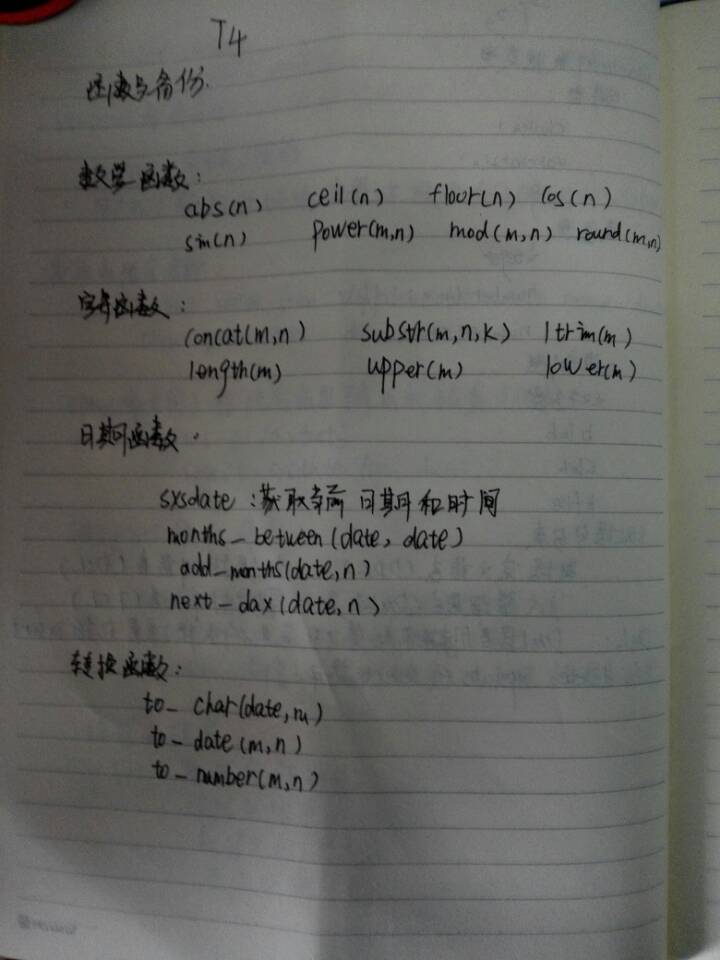 T4
函数与备份.
数学函数:
abs(n) ceil(n) flour(n) cos(n)
sin(n) power(m,n) mod(m,n) round(m,n)
字符函数:
concat(m,n) substr(m,n,k) ltrim(m)
length(m) upper(m) lower(m)
日期函数.
sxsdate:获取当前日期和时间
months_between(date, date)
add_months(date,n)
next_dax(date,n)
转换函数:
to_char(date,m)
to_date(m,n)
to_number(m,n)